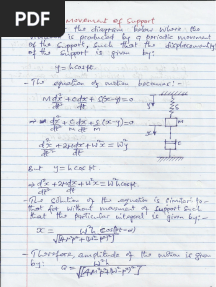 PDF
Movement of Support
the diagram below where the
is produced by a periodic movement
of the support, such that the displacement y
of the support is given by:
y = h cos pt.
- The equation of motion becomes:-
M d²x/dt² + c dx/dt + s(x-y) = 0
⇒ d²x/dt² + c/M dx/dt + s/M (x-y) = 0
d²x/dt² + 2μ dx/dt + ω²x = ω²y
But y = h cos pt.
⇒ d²x/dt² + 2μ dx/dt + ω²x = ω²h cos pt.
- The solution of the equation is similar to
that for without movement of support such
that the particular integral is given by:-
x = ω²h cos(pt-α) / √[4μ²p² + (ω²-p²)²]
- Therefore, amplitude of the motion is given
by:
a = ω²h / √[4μ²p² + (ω²-p²)²]